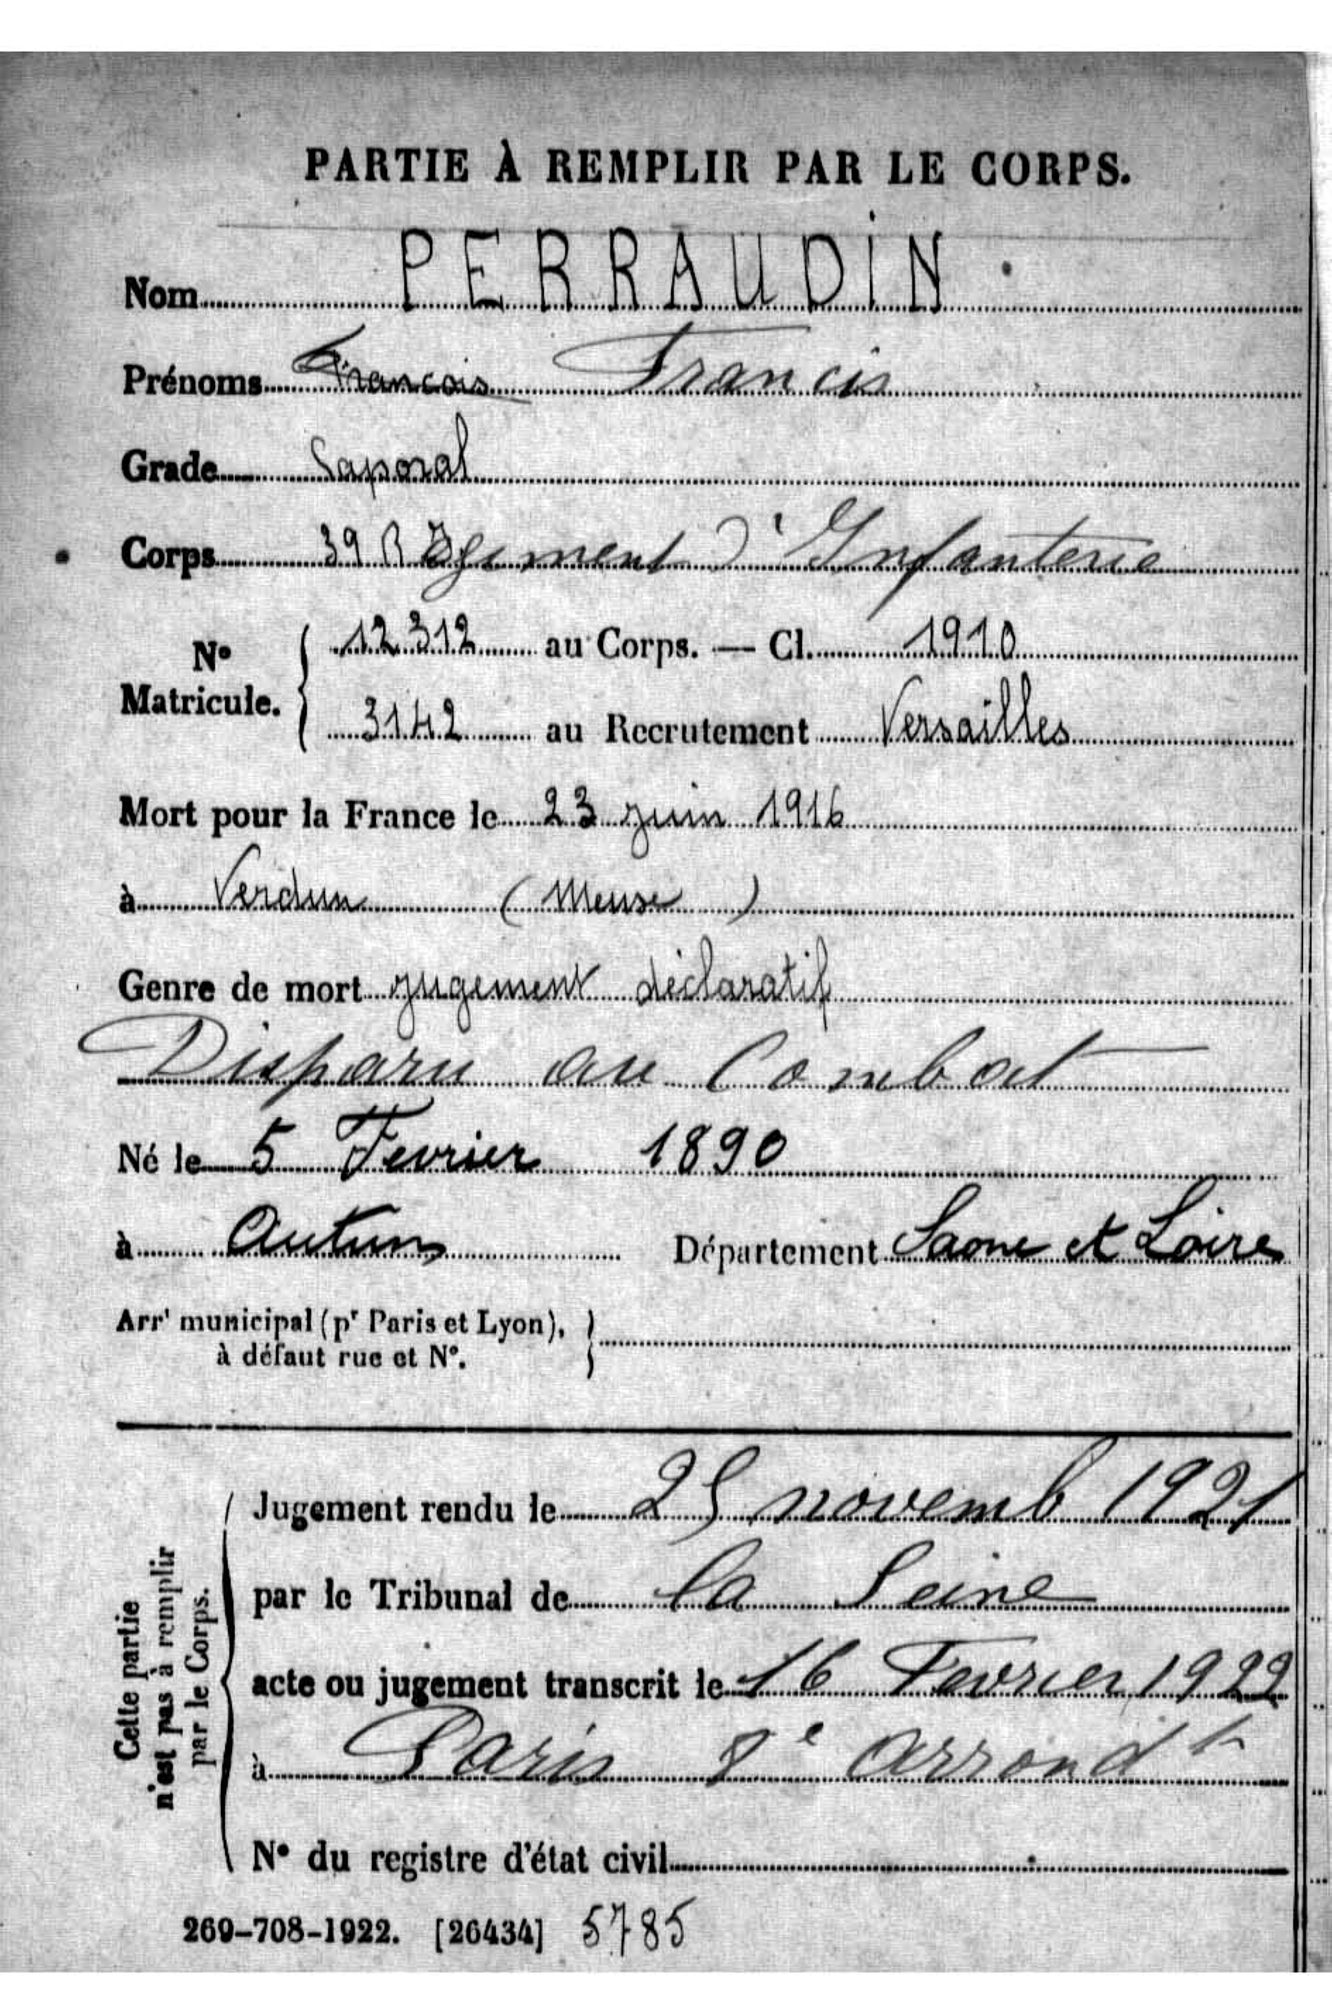 PARTIE À REMPLIR PAR LE CORPS.
Nom PERRAUDIN
Prénoms François Francis
Grade Caporal
Corps 39 Régiment d'Infanterie
N° Matricule. 12312 au Corps. — Cl. 1910
3142 au Recrutement Versailles
Mort pour la France le 23 juin 1916
à Verdun (Meuse)
Genre de mort jugement déclaratif
Disparu au Combat
Né le 5 Fevrier 1890
à Autun Département Saone et Loire
Arrt municipal (pr Paris et Lyon),
à défaut rue et N°.
Cette partie
n'est pas à remplir
par le Corps.
Jugement rendu le 25 novemb 1921
par le Tribunal de la Seine
acte ou jugement transcrit le 16 Fevrier 1922
à Paris 8e arrondt
N° du registre d'état civil
269-708-1922. [26434] 5785